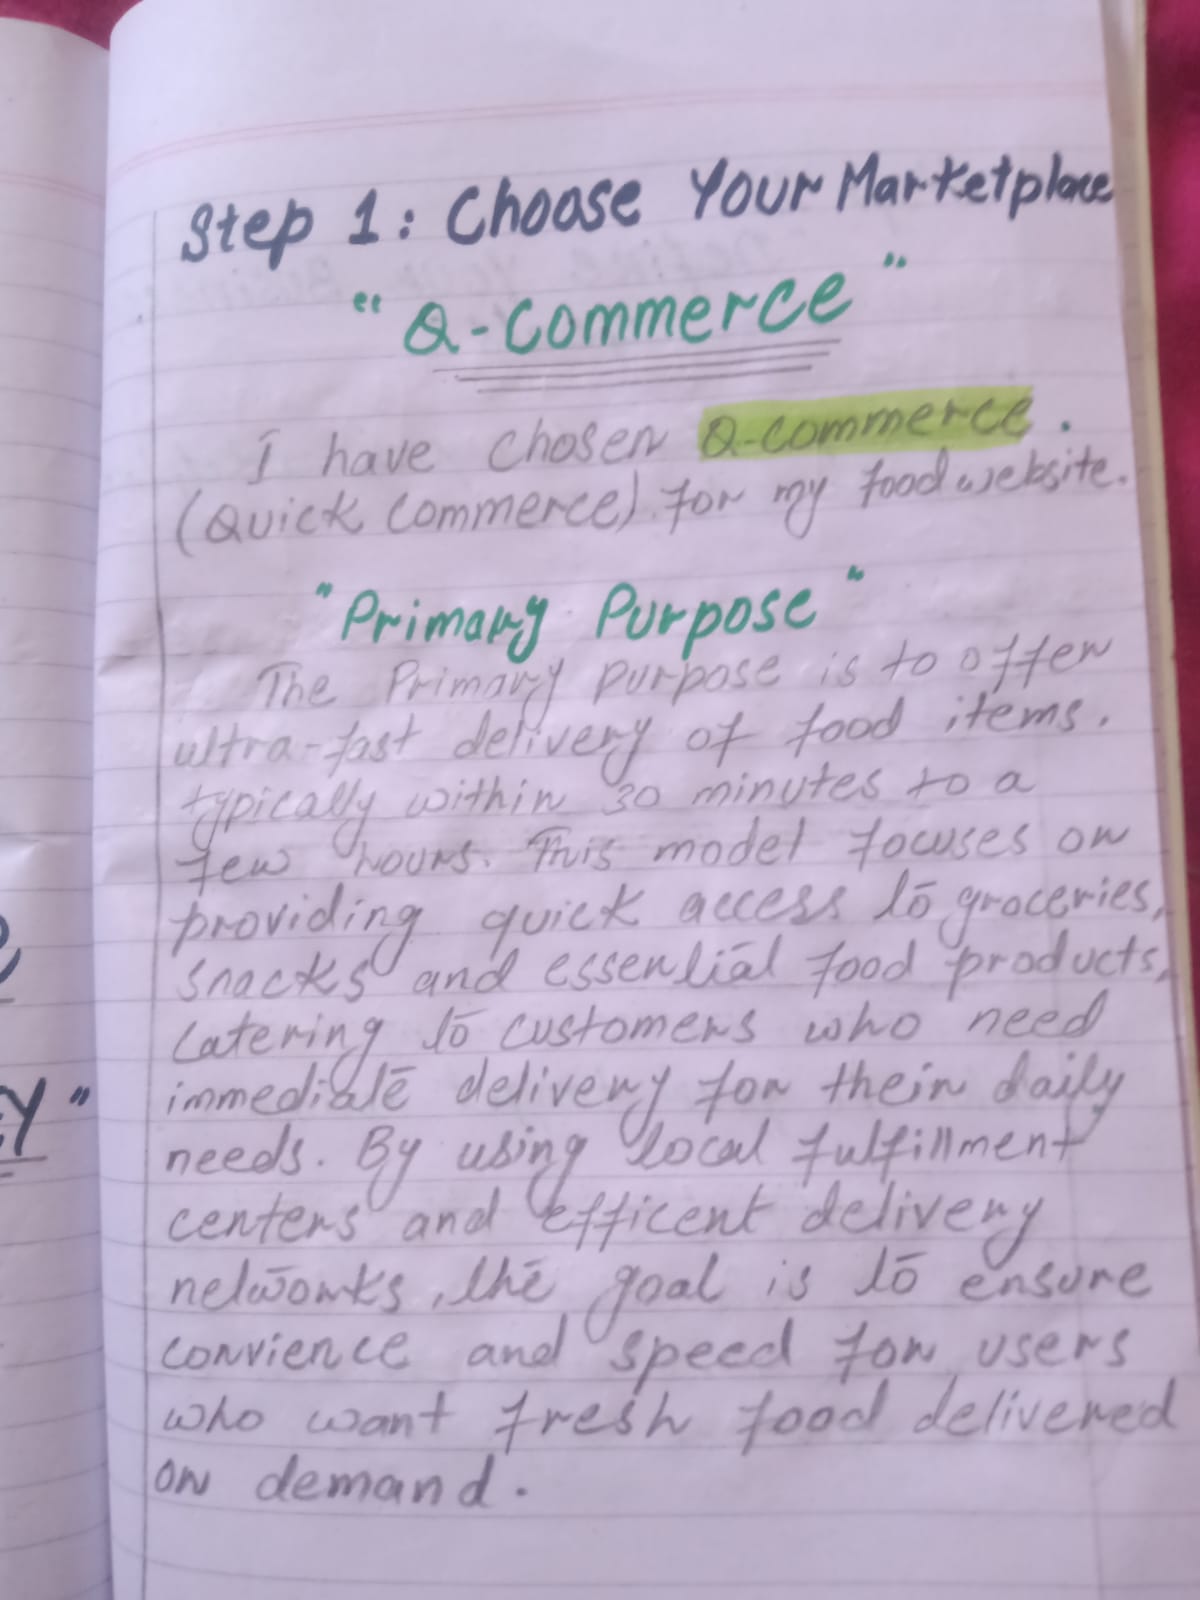 Step 1: Choose Your Marketplace
"Q-Commerce"
I have chosen Q-commerce.
(Quick Commerce) for my food website.
"Primary Purpose"
The Primary purpose is to offer
ultra-fast delivery of food items.
typically within 30 minutes to a
few hours. This model focuses on
providing quick access to groceries,
snacks and essential food products,
catering to customers who need
immediate delivery for their daily
needs. By using local fulfillment
centers and efficent delivery
networks, the goal is to ensure
convience and speed for users
who want fresh food delivered
on demand.